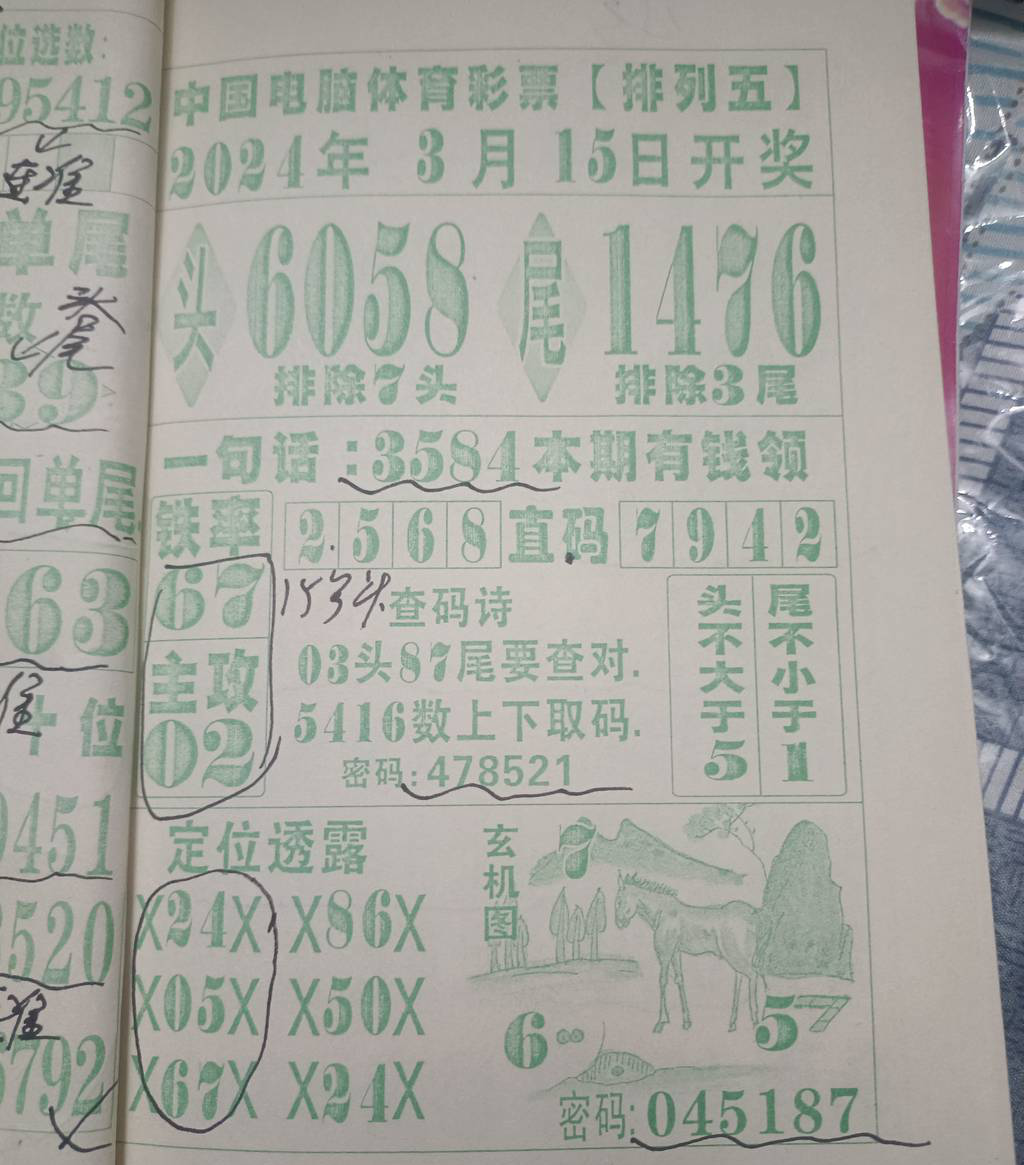 位选数:
95412
连准
单尾
数
39
头尾
回单尾
63
准
十位
9451
3520
准
5792
中国电脑体育彩票【排列五】
2024年 3月 15日开奖
头 6058 尾 1476
排除7头 排除3尾
一句话:3584本期有钱领
铁率 2 5 6 8 直码 7 9 4 2
67
主攻
02
查码诗
03头87尾要查对.
5416数上下取码.
密码:478521
头不大于5
尾不小于1
定位透露
X24X X86X
X05X X50X
X67X X24X
玄机图
6
57
密码:045187